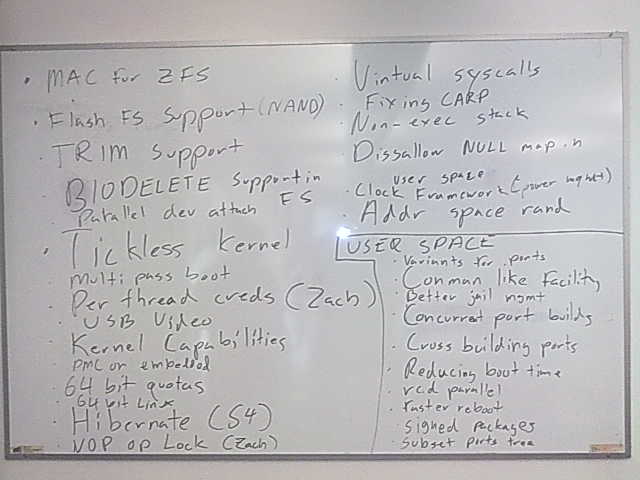 · MAC for ZFS
· Flash FS Support (NAND)
· TRIM Support
· BIODELETE Support in FS
· Parallel dev attach
· Tickless Kernel
· Multi pass boot
· Per thread creds (Zach)
· USB Video
· Kernel Capabilities
· PMC on embedded
· 64 bit quotas
· 64 bit Linux
· Hibernate (S4)
· VOP op Lock (Zach)
· Virtual syscalls
· Fixing CARP
· Non-exec stack
· Dissallow NULL map in user space
· Clock Framework (power mgmt)
· Addr space rand
USER SPACE
· Variants for ports
· Conman like Facility
· Better jail mgmt
· Concurrent port builds
· Cross building ports
· Reducing boot time
· rcd parallel
· faster reboot
· Signed packages
· Subset ports tree